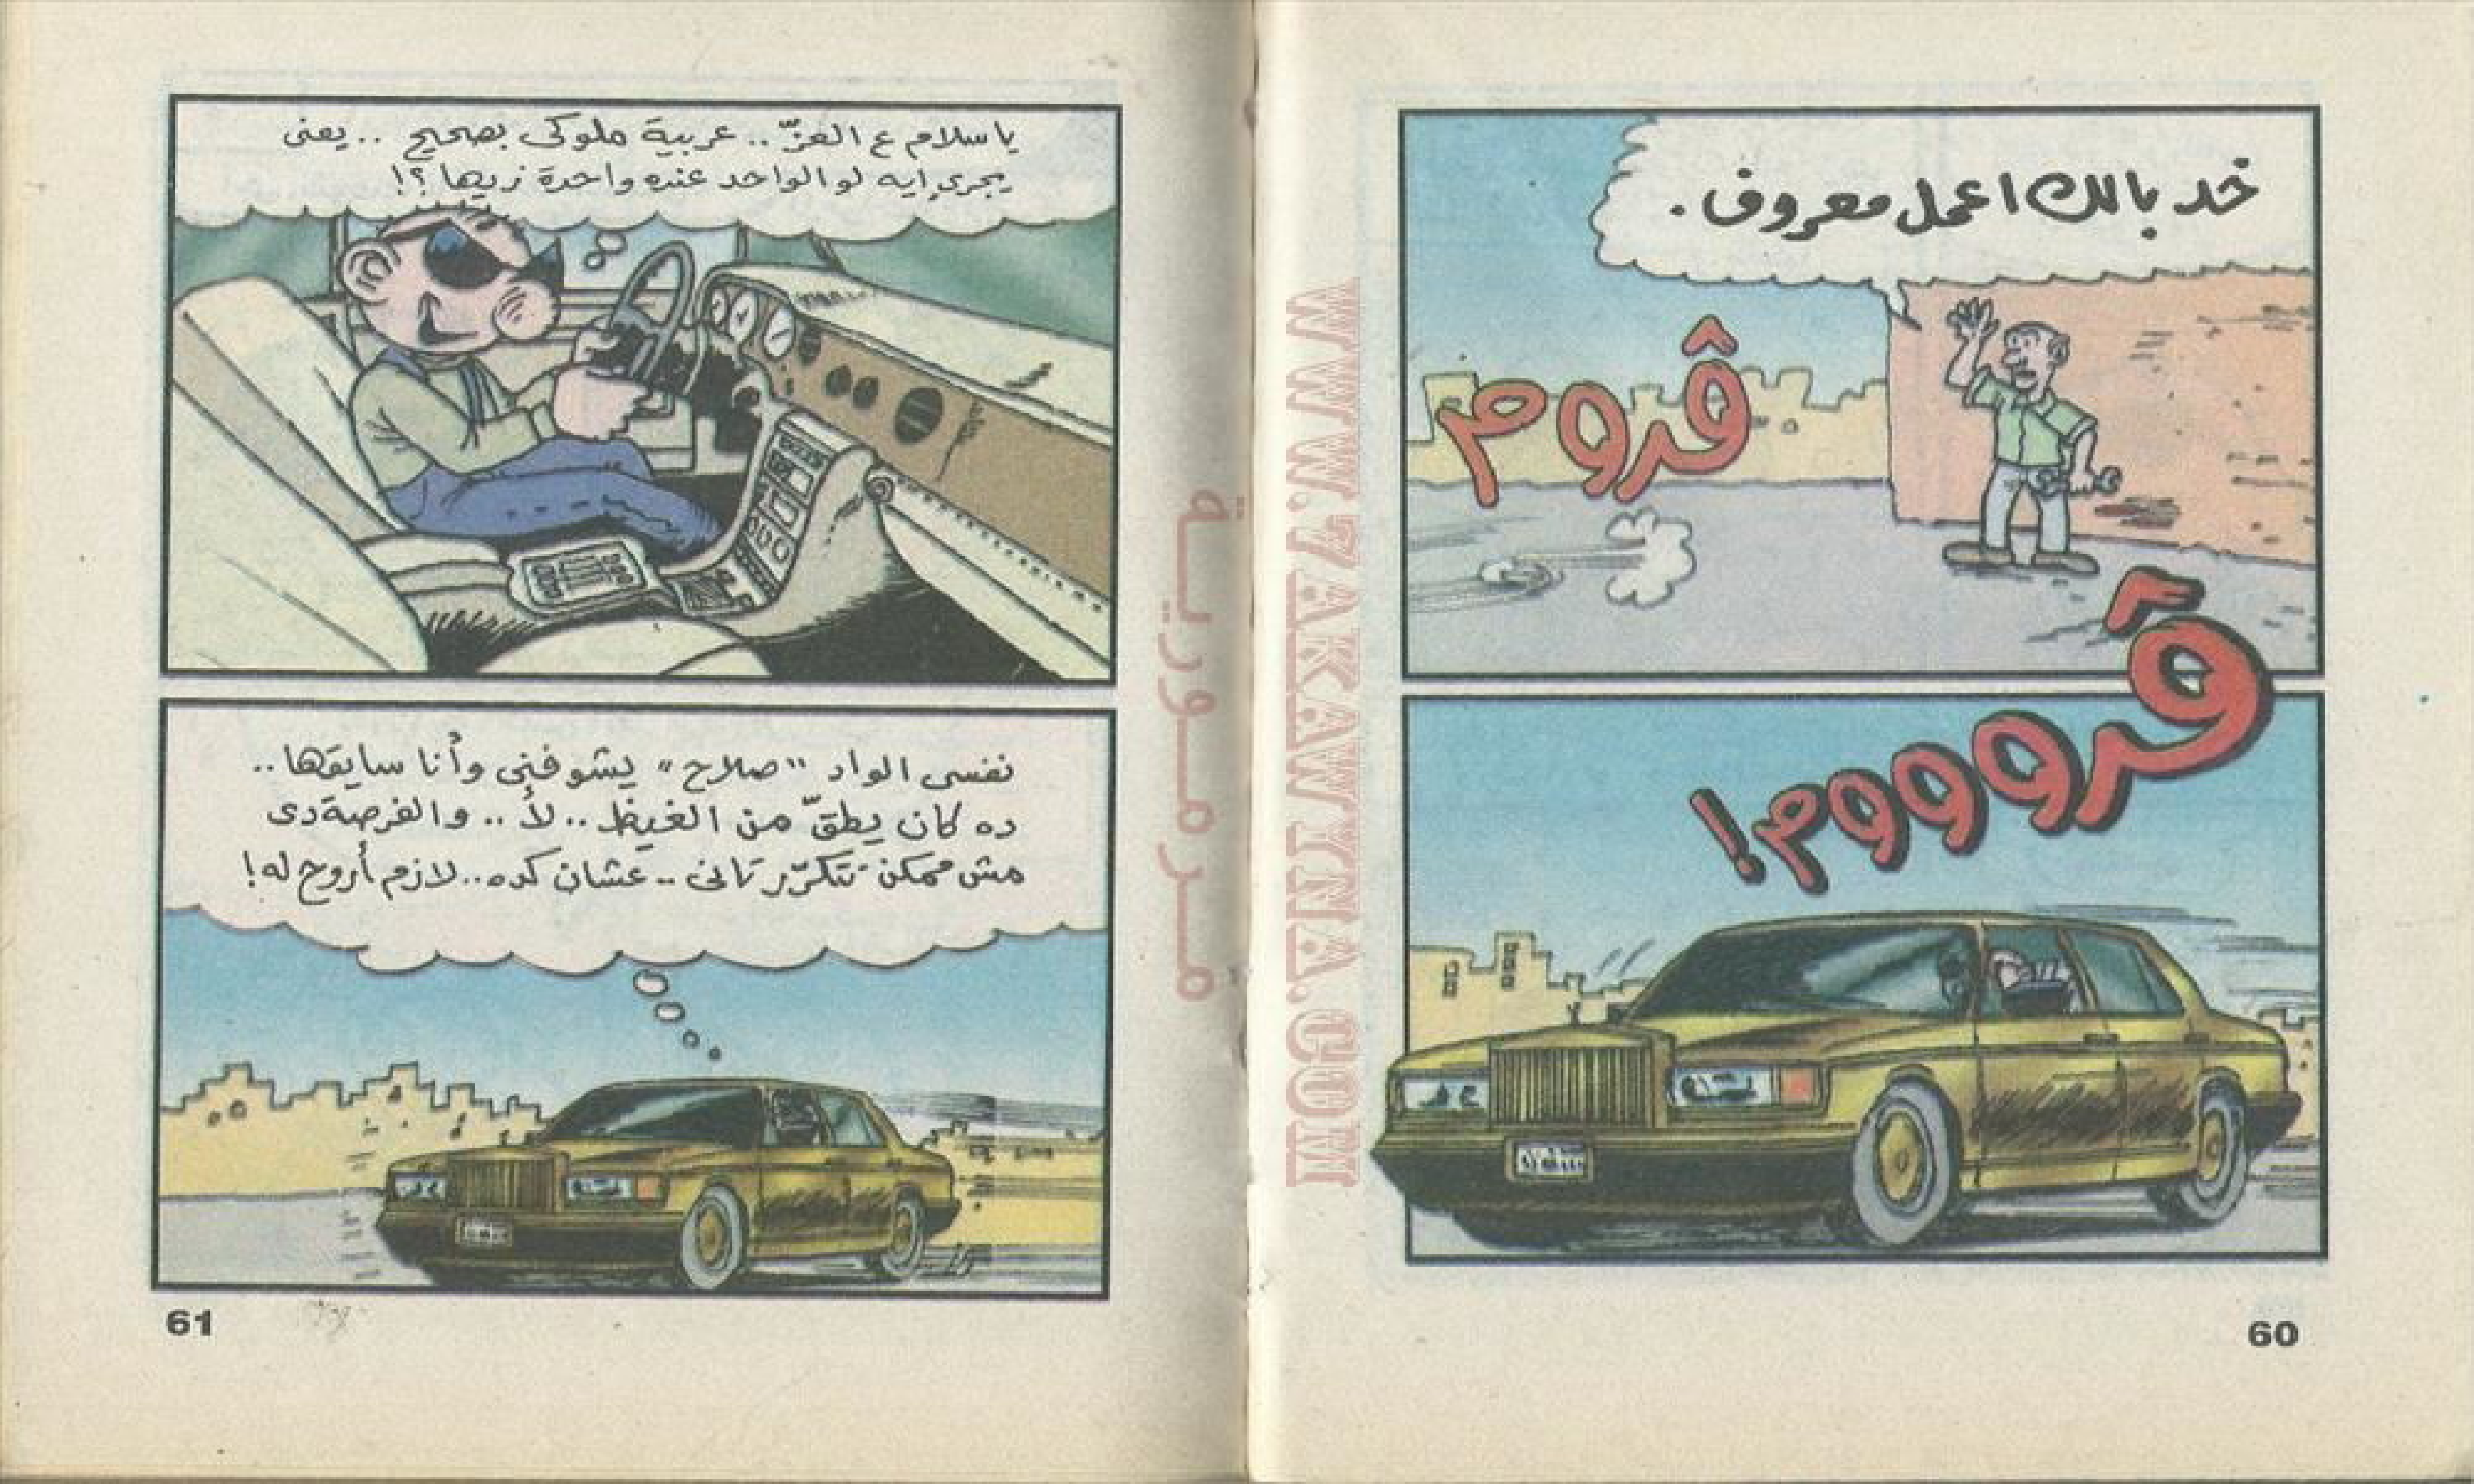 خد بالك اعمل معروف.
ڤروم
ڤرووووم!
60
يا سلام ع العزّ.. عربية ملوكى بصحيح.. يعنى
يجرى إيه لو الواحد عنده واحدة زيها؟!
نفسى الواد "صلاح" يشوفنى وأنا سايقها..
ده كان يطقّ من الغيظ.. لأ.. والفرصة دى
مش ممكن تتكرّر تانى.. عشان كده.. لازم أروح له!
61
مرمورية
WWW.7AKAWYNA.COM